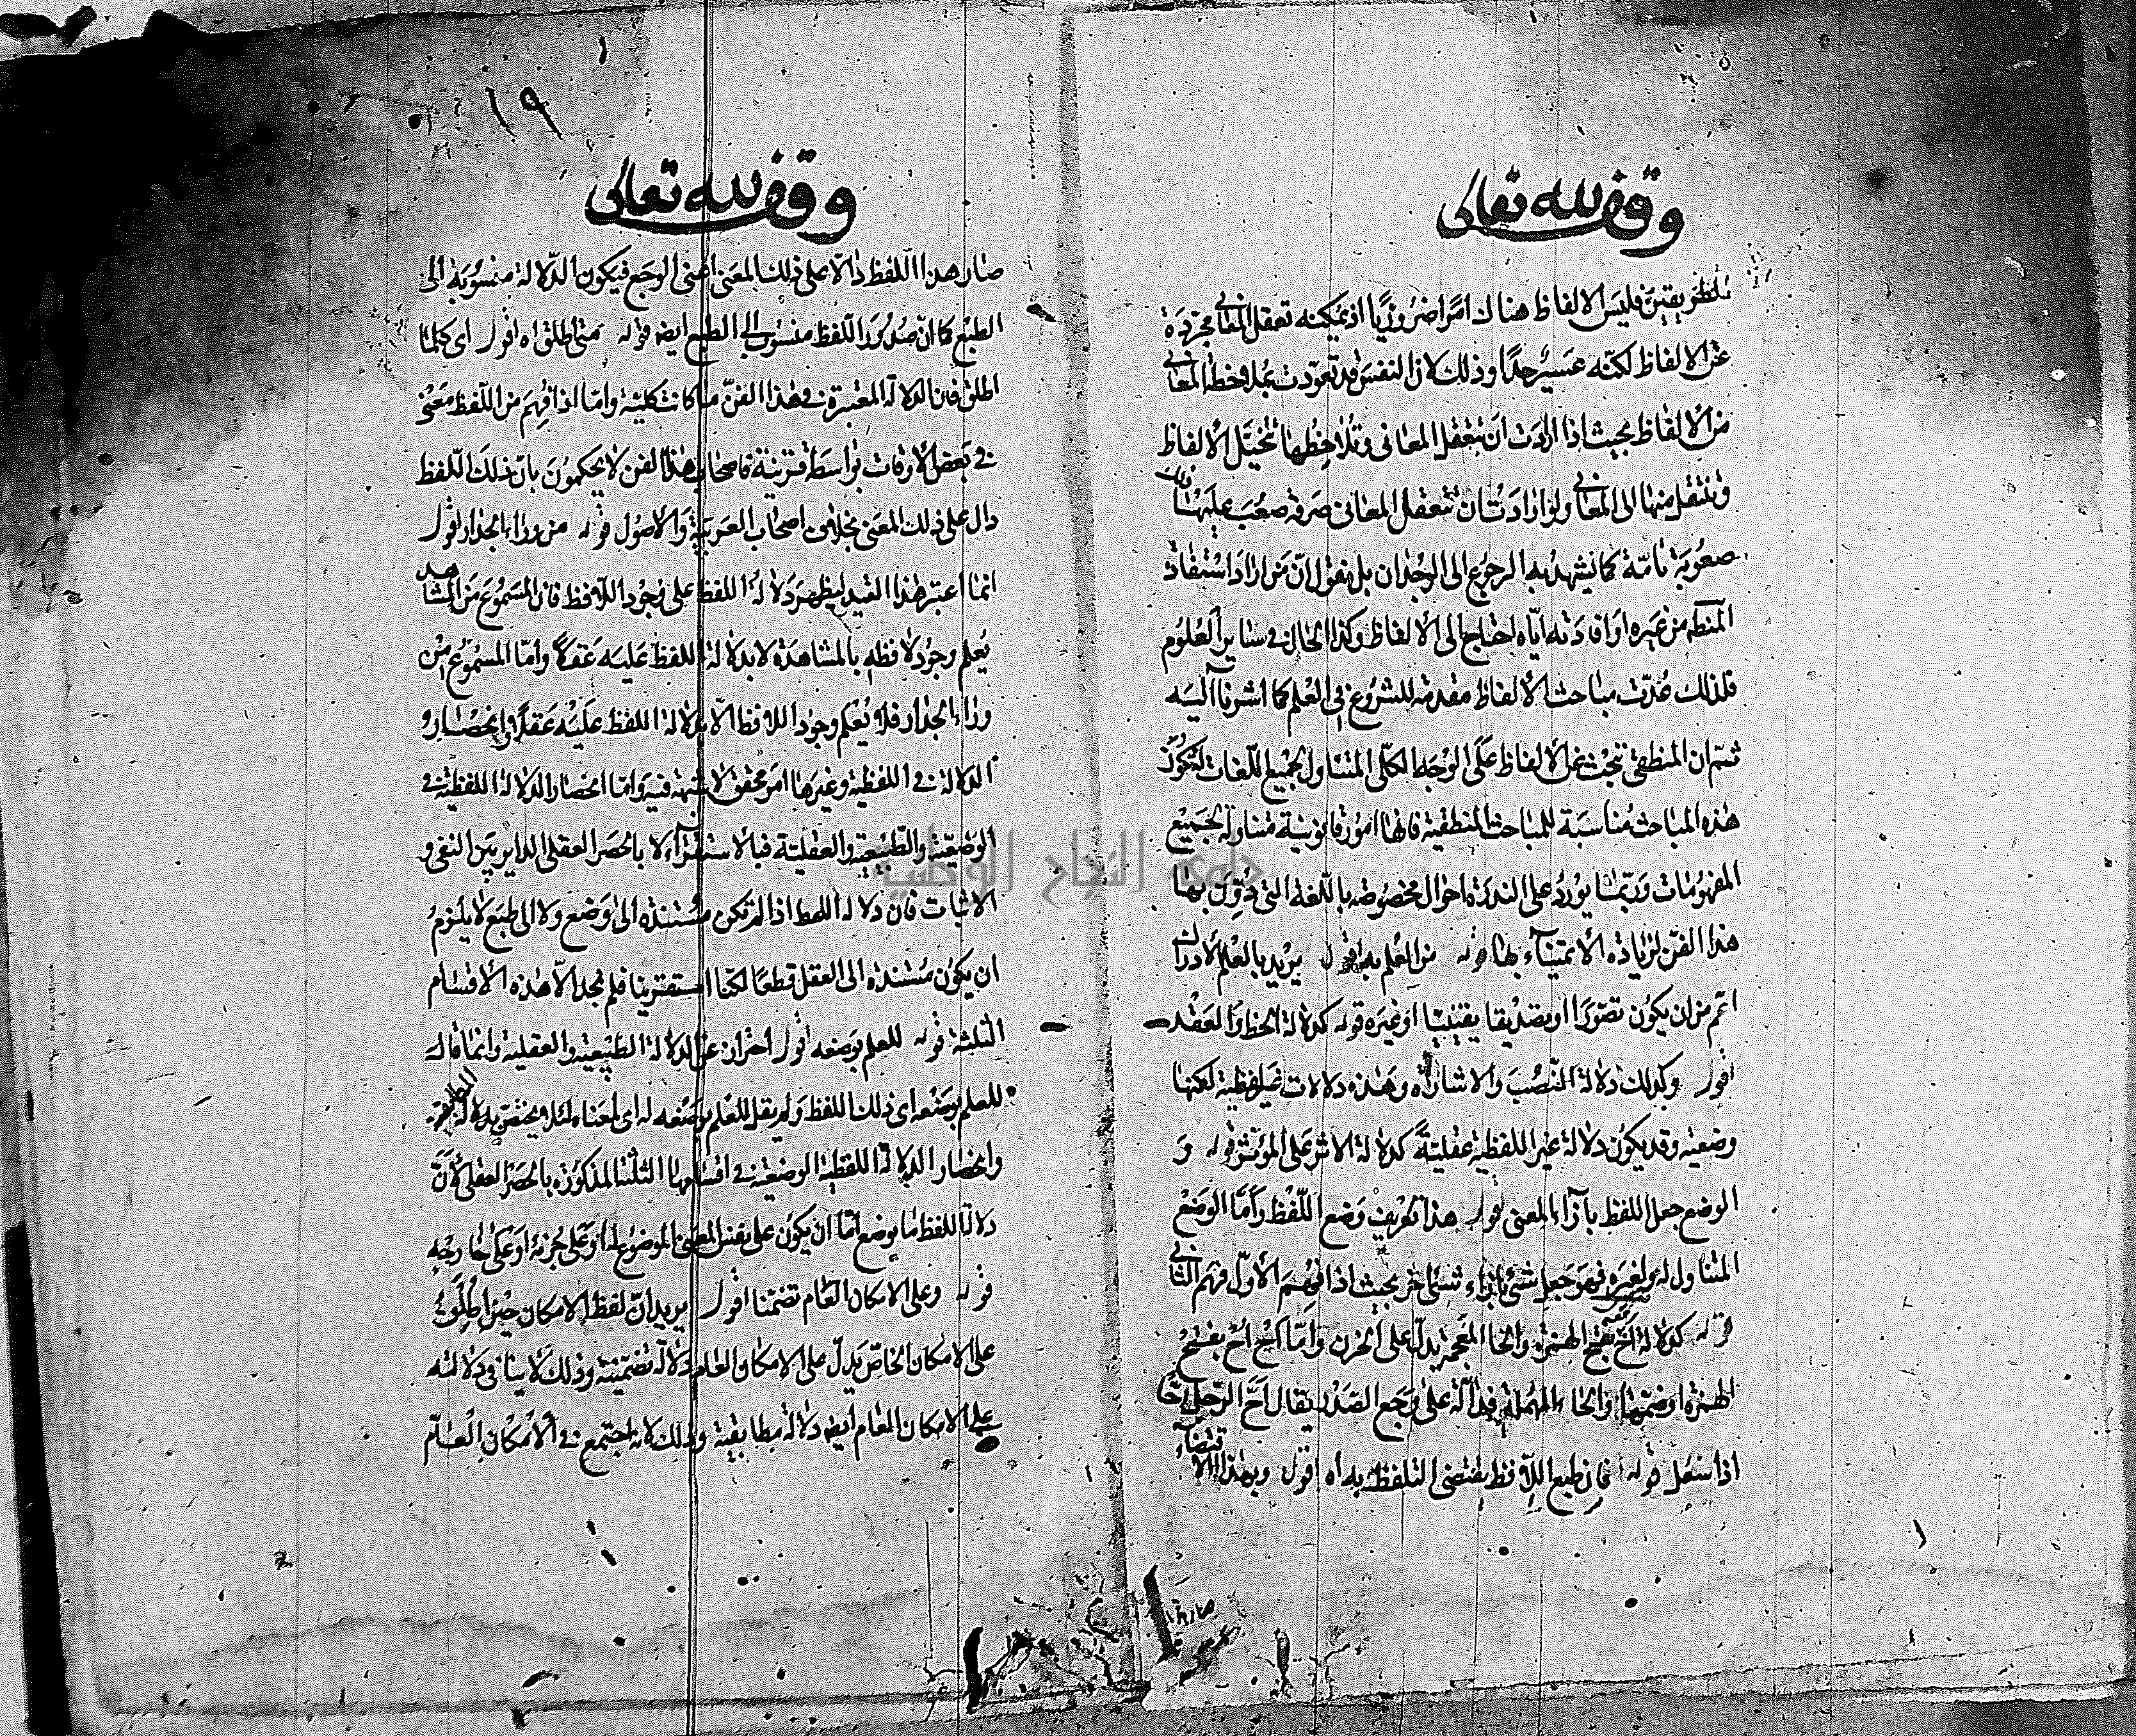 وقف لله تعالى
للطريقين فليس الالفاظ هناك امرا ضروريا اذ يمكنه تعقل المعاني مجردة
عن الالفاظ لكنه عسير جدا وذلك لان النفس قد تعودت بملاحظة المعاني
من الالفاظ بحيث اذا ارادت ان تتعقل المعاني وتلاحظها تتخيل الالفاظ
وتنتقل منها الى المعاني ولو ارادت ان تتعقل المعاني صرفة صعب عليها ذلك
صعوبة تامة كما يشهد به الرجوع الى الوجدان بل نقول ان من اراد استفادة
المنطق من غيره او افادته اياه احتاج الى الالفاظ وكذا الحال في سائر العلوم
فلذلك عدت مباحث الالفاظ مقدمة للشروع في العلم كما اشرنا اليه
ثم ان المنطقي يبحث عن الالفاظ على الوجه الكلي المتناول لجميع اللغات لتكون
هذه المباحث مناسبة للمباحث المنطقية فانها امور قانونية متناولة لجميع
المفهومات وربما يورد على الندرة احوال مخصوصة باللغة التي دون بها
هذا الفن لزيادة الاعتناء بها قوله من العلم به اقول يريد بالعلم الادراك
اعم من ان يكون تصورا او تصديقا يقينيا او غيره قوله كدلالة الخط والعقد
اقول وكذلك دلالة النصب والاشارة وهذه دلالات غير لفظية لكنها
وضعية وقد يكون دلالة غير اللفظية عقلية كدلالة الاثر على المؤثر قوله و
الوضع جعل اللفظ بازاء المعنى اقول هذا تعريف وضع اللفظ واما الوضع
المتناول له ولغيره فهو جعل شئ بازاء شئ اخر بحيث اذا فهم الاول فهم الثاني
قوله كدلالة اخ بفتح الهمزة والخاء المعجمة يدل على الحزن واما اح اح بفتح
الهمزة او ضمها والحاء المهملة فدالة على وجع الصدر يقال اح الرجل احا
اذا سعل قوله فان طبع اللافظ يقتضي التلفظ به اه اقول وبهذا الاقتضاء
١٩
وقف لله تعالى
صار هذا اللفظ دالا على ذلك المعنى اعنى الوجع فيكون الدلالة منسوبة الى
الطبع كما ان صدور اللفظ منسوب الى الطبع ايضا قوله متى اطلق اه اقول اى كلما
اطلق فان الدلالة المعتبرة في هذا الفن ما كانت كلية واما اذا فهم من اللفظ معنى
في بعض الاوقات بواسطة قرينة فاصحاب هذا الفن لا يحكمون بان ذلك اللفظ
دال على ذلك المعنى بخلاف اصحاب العربية والاصول قوله من وراء الجدار اقول
انما اعتبر هذا القيد ليظهر دلالة اللفظ على وجود اللافظ فان المسموع من المشاهد
يعلم وجود لافظه بالمشاهدة لا بدلالة اللفظ عليه عقلا واما المسموع من
وراء الجدار فلا يعلم وجود اللافظ الا بدلالة اللفظ عليه عقلا وانحصار
الدلالة في اللفظية وغيرها امر محقق لا شبهة فيه واما انحصار الدلالة اللفظية في
الوضعية والطبيعية والعقلية فبالاستقراء لا بالحصر العقلي الداير بين النفي و
الاثبات فان دلالة اللفظ اذا لم تكن مستندة الى وضع ولا الى طبع لا يلزم
ان يكون مستندة الى العقل قطعا لكنا استقرينا فلم نجد الا هذه الاقسام
الثلثة قوله للعلم بوضعه اقول احتراز عن الدلالة الطبيعية والعقلية وانما قال
للعلم بوضعه اى ذلك اللفظ ولم يقل للعلم بوضعه له اى لمعناه لئلا يختص بدلالة المطابقة
وانحصار الدلالة اللفظية الوضعية في اقسامها الثلث المذكورة بالحصر العقلي لان
دلالة اللفظ بالوضع اما ان يكون على نفس المعنى الموضوع له او على جزئه او على خارجه
قوله وعلى الامكان العام تضمنا اقول يريد ان لفظ الامكان حين اطلق
على الامكان الخاص يدل على الامكان العام دلالة تضمنية وذلك لا ينافي دلالته
على الامكان العام ايضا دلالة مطابقية وذلك لانه اجتمع في الامكان العام